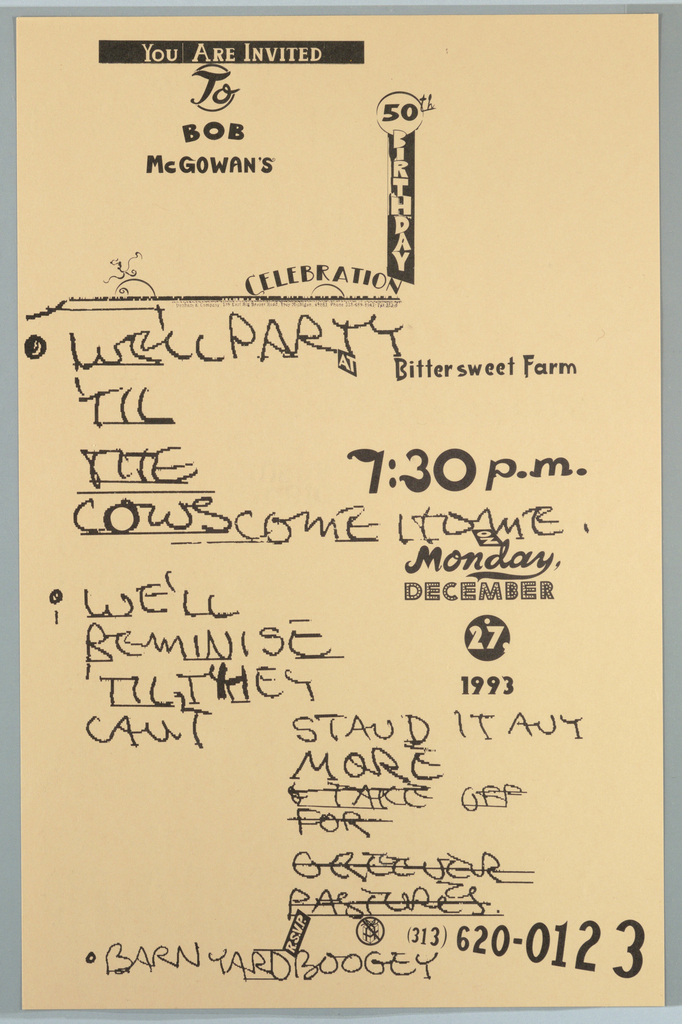 You Are Invited
To
BOB
McGOWAN'S
50th
BIRTHDAY
CELEBRATION
WE'LL PARTY
AT
Bittersweet Farm
'TIL
THE
7:30 p.m.
COWS COME HOME.
Monday,
DECEMBER
27
1993
WE'LL
REMINISE
'TIL THEY
CAN'T STAND IT ANY
MORE
& TAKE OFF
FOR
GREENER
PASTURES.
RSVP
(313) 620-0123
BARNYARD BOOGEY